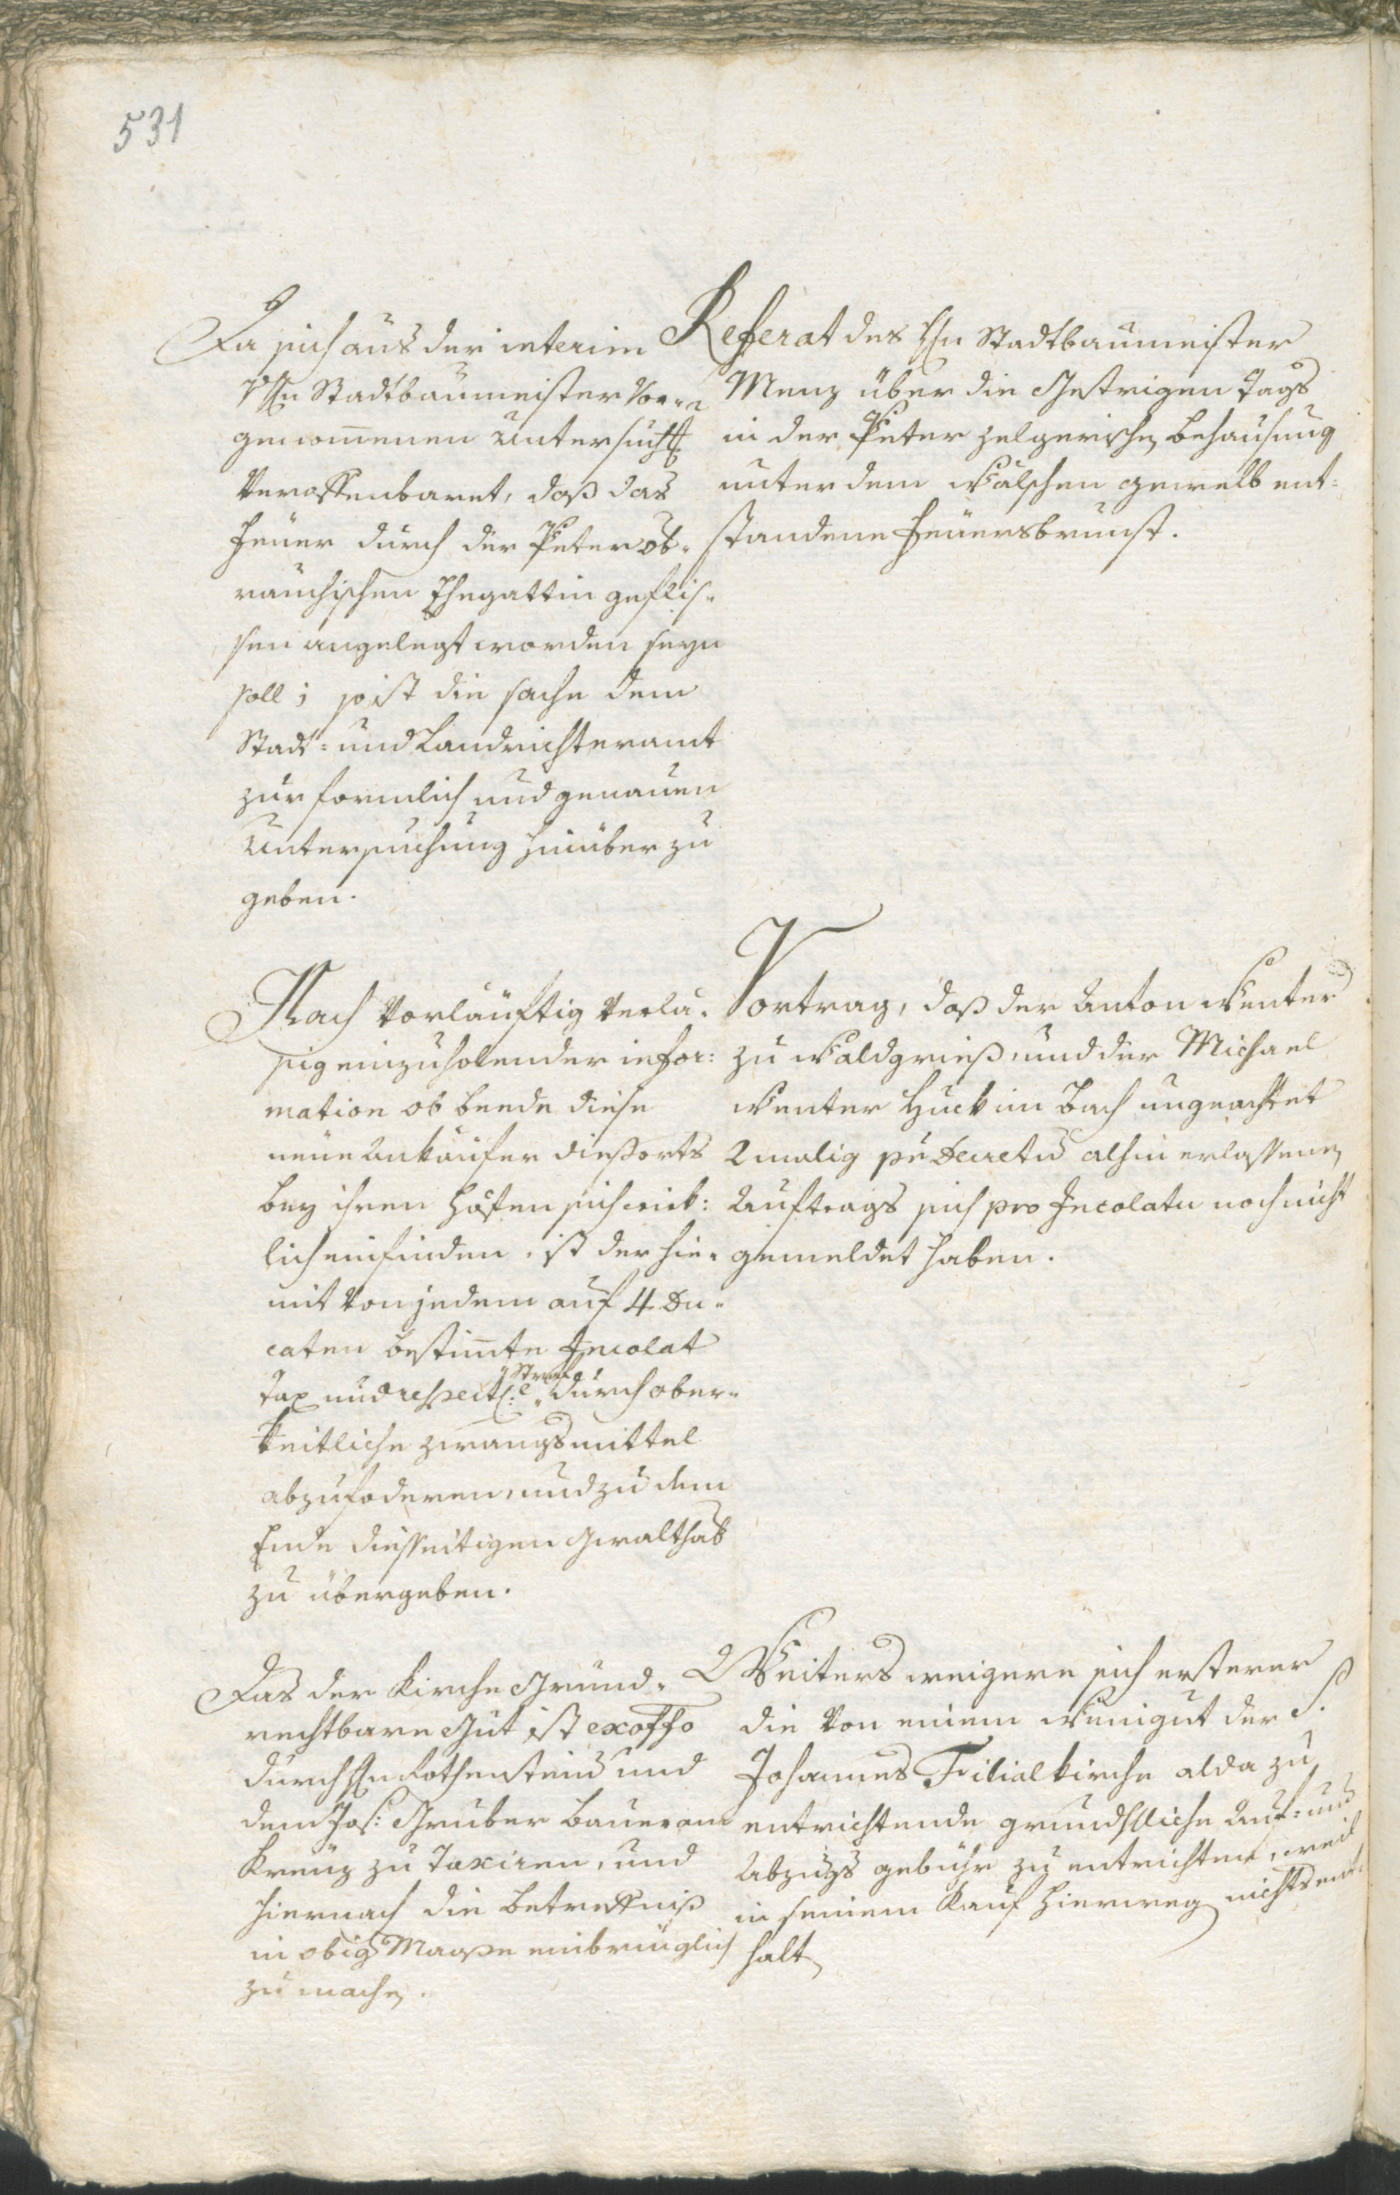 531
Referat des H̄n Stadtbaumeister
Menz über die Gestrigen Tags
in der Peter zelgerischen behausung
unter dem Wälschen gewelb ent=
standene Feüersbrunst.
Da sich aus der interim
H̄n Stadtbaumeister Vor-
genom̄enen Untersuchg
Veroffenbaret, daß das
Feüer durch der Peter
Ehegattin geflis-
sen angelegt worden seyn
soll; so ist die sache dem
Stadt= und Landrichteramt
zur formlich und genauen
Untersuchung hinüber zu
geben.
Vortrag, daß der Anton Venter
zu Waldgrieß, und der Michael
Venter Huck im Bach ungeachtet
2malig Decretu alhin erlassenen
Auftrags sich pro Incolatu noch nicht
gemeldet haben.
Nach Vorläuftig Verlä-
ßig einzuholender infor:
mation ob beede diese
neüe Ankäufer dießorts
bey ihren Höfen sich wirk:
lich einfinden, ist der hie-
mit Von jedem auf 4 Du-
caten bestim̄te Incolat
Tax und respect: Straf durch ober-
keitliche zwangsmittel
abzufoderen, und zu dem
Ende diesseitigen Gwalthab
zu übergeben.
Weiters weigere sich ersterer
die Von einem Weingut der S.
Johannes Filialkirche alda zu
entrichtende grundhliche Auf= und
Abzugs gebühr zu entrichten, weil
in seinem Kauf hierweg nichts ent
halt
Das der Kirche Grund-
rechtbare Gut ist exoffo
durch H̄n Rothensteiner und
dem Jos: Gruber Bauer am
Kreüz zu Taxiren, und
hiernach die betreffniß
in obig Maaße einbringlich
zu machen.